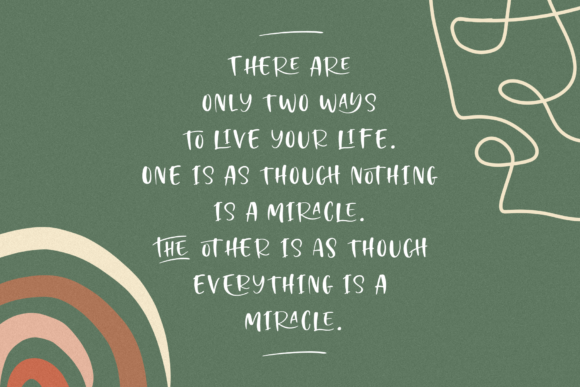 THERE ARE
ONLY TWO WAYS
TO LIVE YOUR LIFE.
ONE IS AS THOUGH NOTHING
IS A MIRACLE.
THE OTHER IS AS THOUGH
EVERYTHING IS A
MIRACLE.